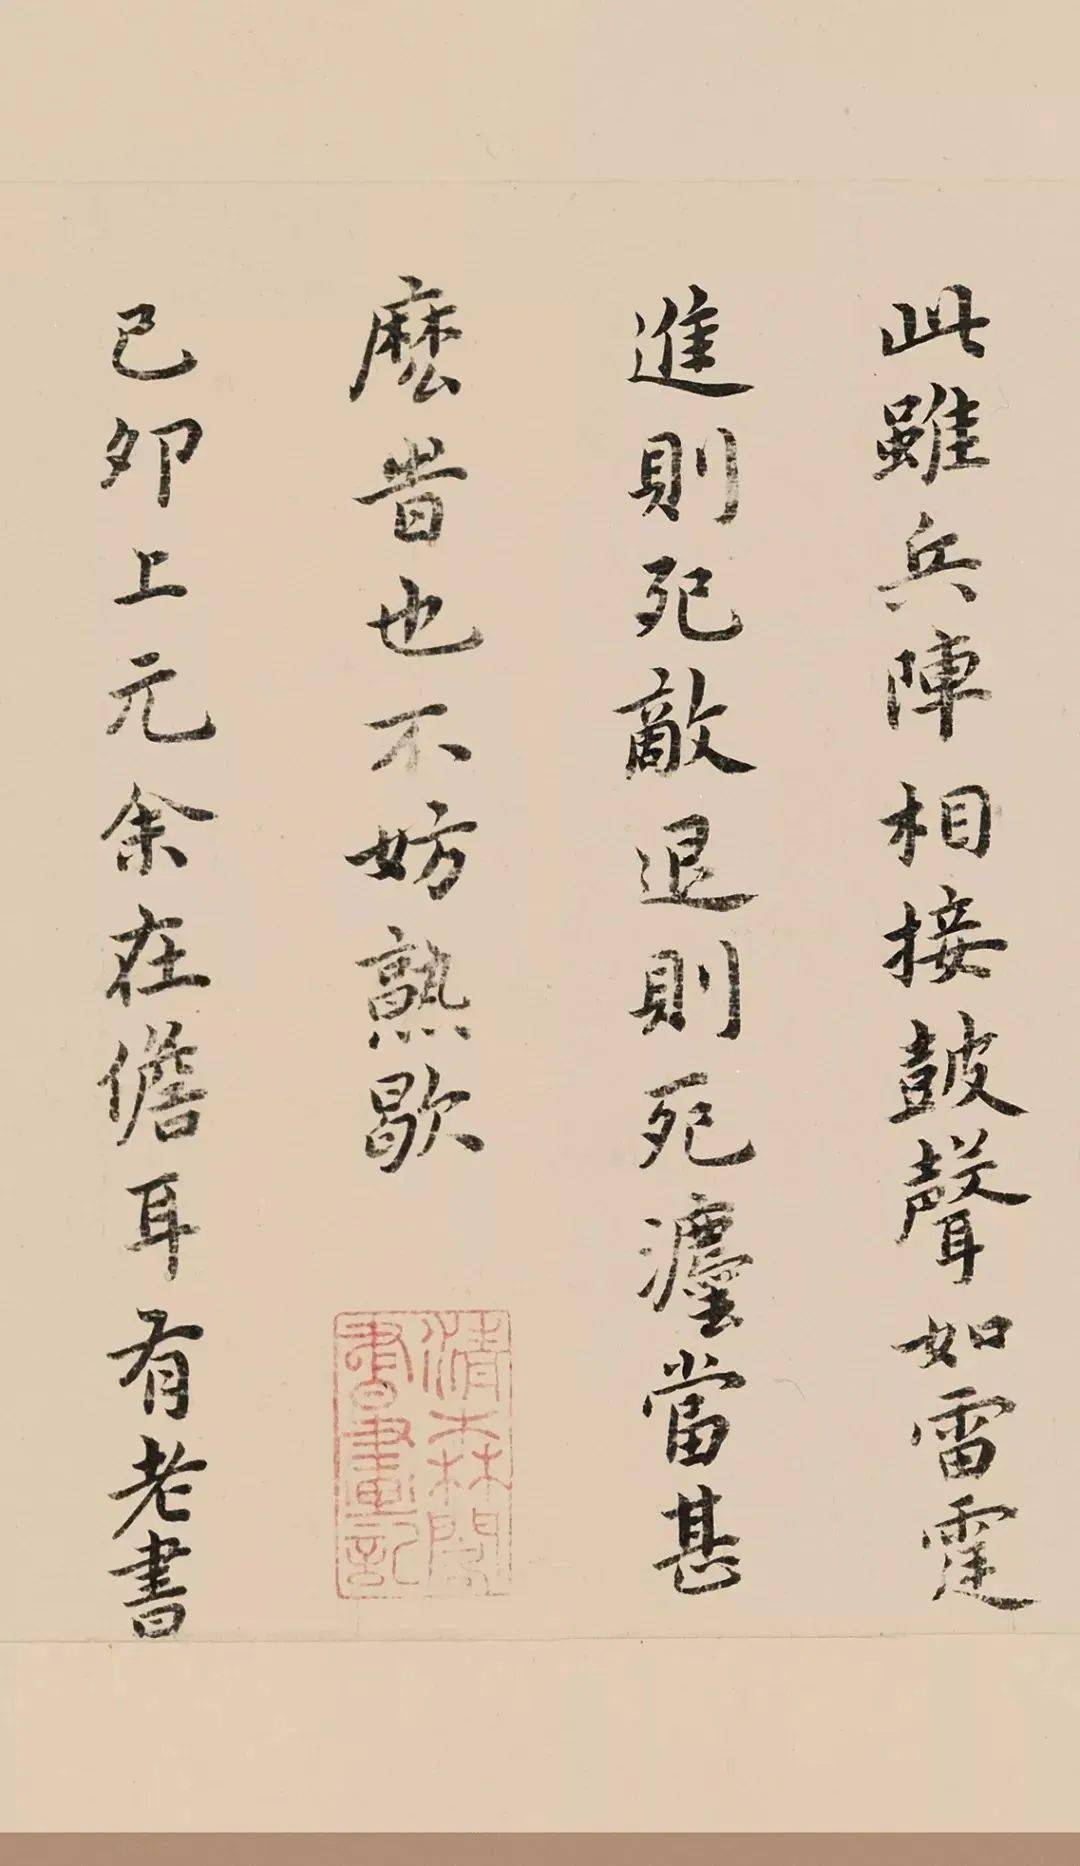 此雖兵陣相接鼓聲如雷霆
進則死敵退則死灋當甚
麽旹也不妨熟歇
清森閣
書畫記
己卯上元余在儋耳有老書